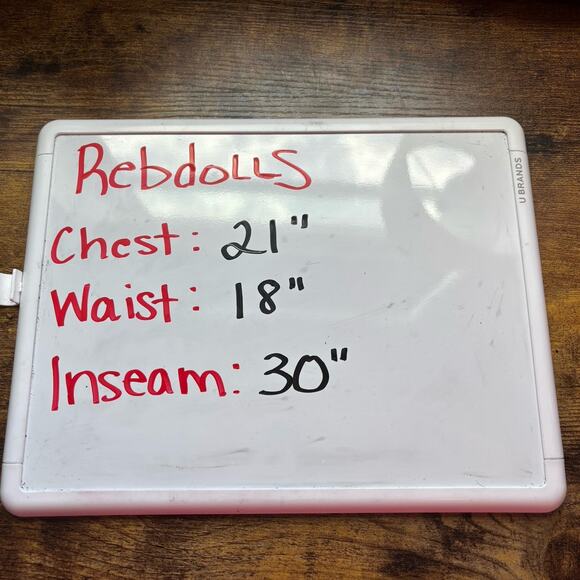 RebdoLLS
Chest: 21"
Waist: 18"
Inseam: 30"
U BRANDS